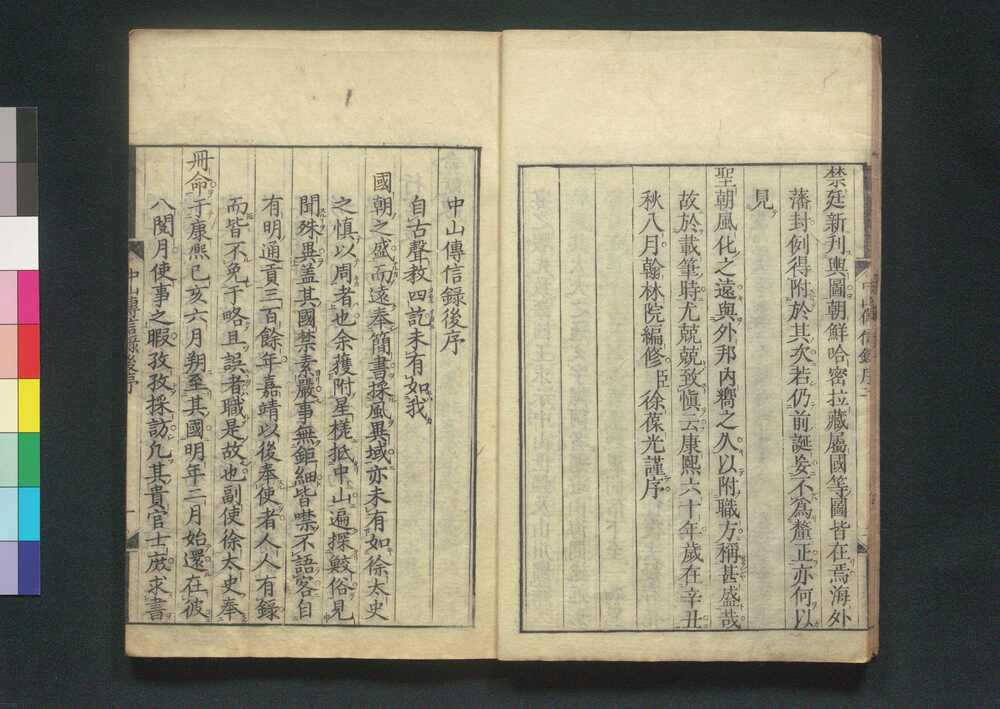 禁廷新刋輿圖朝鮮哈密拉藏屬國等圖皆在焉海外
藩封例得附於其次若仍前誕妄不爲釐正亦何以
見
聖朝風化之遠與外邦内嚮之久以附職方稱甚盛哉
故於載筆時尤兢兢致愼云康熙六十年歲在辛丑
秋八月翰林院編修臣徐葆光謹序
中山傳信錄後序
自古聲教四訖未有如我
國朝之盛而遠奉簡書採風異域亦未有如徐太史
之慎以周者也余獲附星槎抵中山遍探鮫俗見
聞殊異盖其國禁素嚴事無鉅細皆噤不語客自
有明通貢三百餘年嘉靖以後奉使者人人有錄
而皆不免于略且誤者職是故也副使徐太史奉
冊命于康熙己亥六月朔至其國明年二月始還在彼
八閱月使事之暇孜孜採訪凢其貴官士庶求書
中山傳信錄後序
一